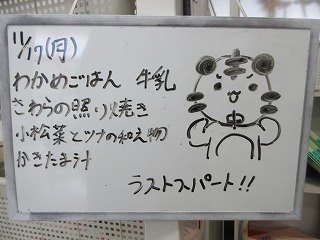 11/17(月)
わかめごはん 牛乳
さわらの照り焼き
小松菜とツナの和え物
かきたま汁
中
ラストスパート!!